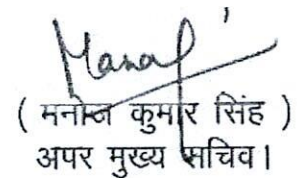 Manoj
( मनोज कुमार सिंह )
अपर मुख्य सचिव।